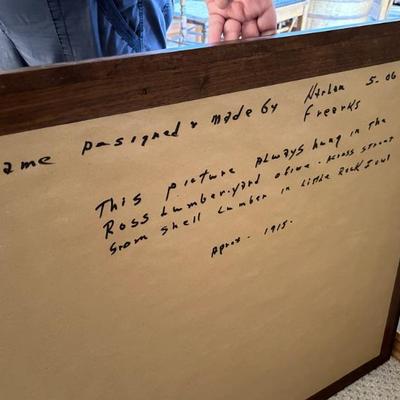 ame Designed & Made By Harlan 5-06
Freerks
This picture Always hung in the
Ross Lumberyard ofice. Across street
from Shell Lumber in Little Rock Iowl
Aprox. 1915.